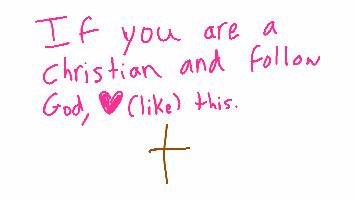 If you are a
Christian and follow
God, ♥ (like) this.